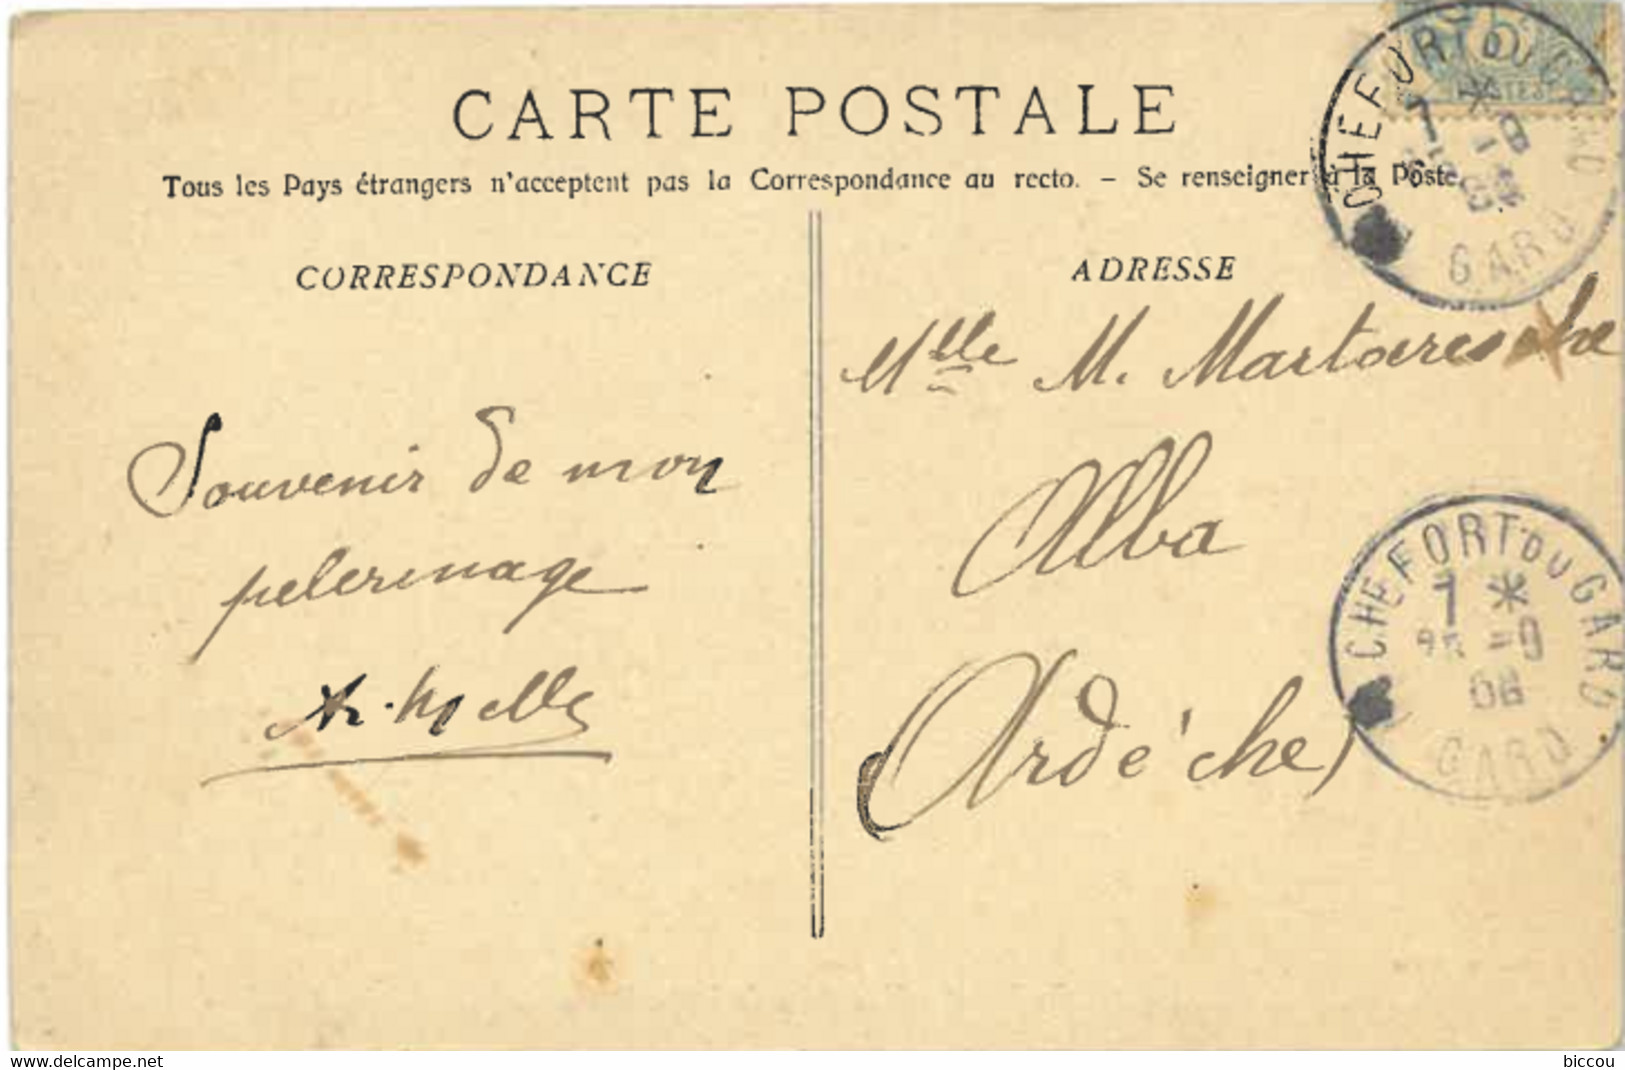 CARTE POSTALE
Tous les Pays étrangers n'acceptent pas la Correspondance au recto. - Se renseigner à la Poste.
CORRESPONDANCE
ADRESSE
Souvenir de mon
pelerinage
Mlle M.
Alba
Ardèche
CHEFORT DU GARD
7 *
-9
06
GARD
CHEFORT DU GARD
7 *
GARD
www.delcampe.net
biccou